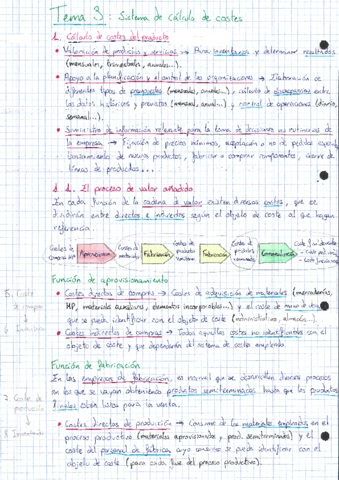 Tema 3: Sistema de cálculo de costes
1. Cálculo de costes del producto
• Valoración de productos y servicios → Para inventarios y determinar resultados
(mensuales, trimestrales, anuales...).
• Apoyo a la planificación y el control de las organizaciones → Elaboración de
diferentes tipos de presupuestos (mensuales, anuales...), cálculo de discrepancias entre
los datos históricos y previstos (mensual, anual...) y control de operaciones (diario,
semanal...).
• Suministro de información relevante para la toma de decisiones no rutinarias de
la empresa → Fijación de precios mínimos, aceptación o no de pedidos especiales
lanzamiento de nuevos productos, fabricar o comprar componentes, cierre de
líneas de productos...
1.1. El proceso de valor añadido
En cada función de la cadena de valor existen diversos costes, que se
dividirán entre directos e indirectos según el objeto de coste al que hagan
referencia.
Costes de
Aprovisiona.
Costes de
Fabricación
Costes de producto
Fabricación
Coste de producto
Comercializ.
Función de aprovisionamiento
• Costes directos de compra → Costes de adquisición de materiales (mercaderías,
MP, materiales auxiliares, elementos incorporables...) y el coste de mano de obra
que se pueda identificar con el objeto de coste (administrativos, almacén...).
• Costes indirectos de compras → Todos aquellos costes no identificables con el
objeto de coste y que dependerán del sistema de costes empleado.
Función de fabricación
En las empresas de fabricación, es normal que se desarrollen diversos procesos
en los que se vayan obteniendo productos semiterminados hasta que los productos
finales estén listos para la venta.
• Costes directos de producción → Consumo de los materiales empleados en el
proceso productivo (materiales aprovisionados y prod. semiterminados) y el
coste del personal de fábrica cuyo importe se pueda identificar con el
objeto de coste (para cada fase del proceso productivo).
Coste
Inventario
Coste de
producción
Inventario